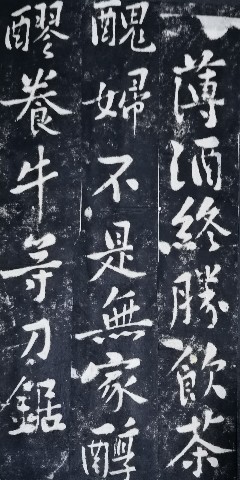 薄酒終勝飲茶
醜婦不是無家醇
醪養牛等刀鋸